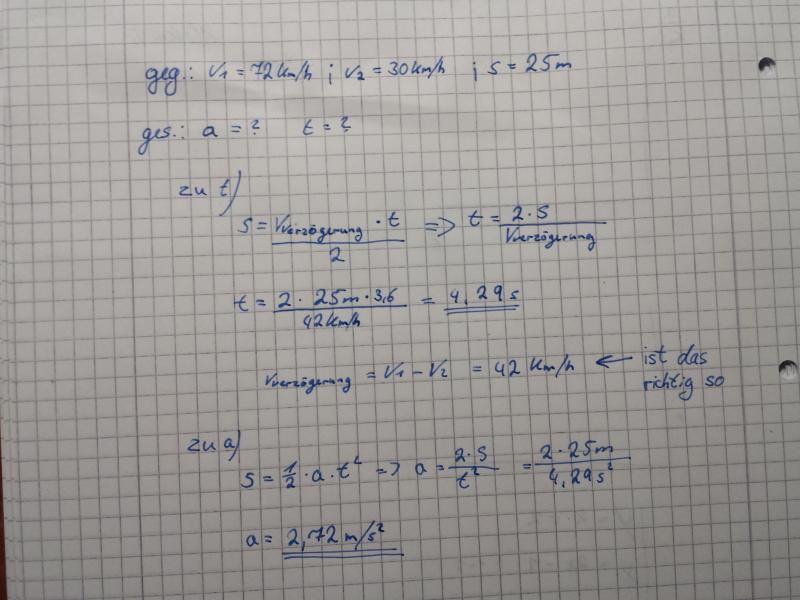 geg.: V1 = 72 Km/h ; V2 = 30 Km/h ; s = 25m
ges.: a = ? t = ?
zu t)
s = Vverzögerung · t / 2 => t = 2 · s / Vverzögerung
t = 2 · 25m · 3,6 / 42 Km/h = 4,29 s
Vverzögerung = V1 - V2 = 42 Km/h ← ist das
richtig so
zu a)
s = 1/2 · a · t² => a = 2 · s / t² = 2 · 25m / 4,29 s²
a = 2,72 m/s²